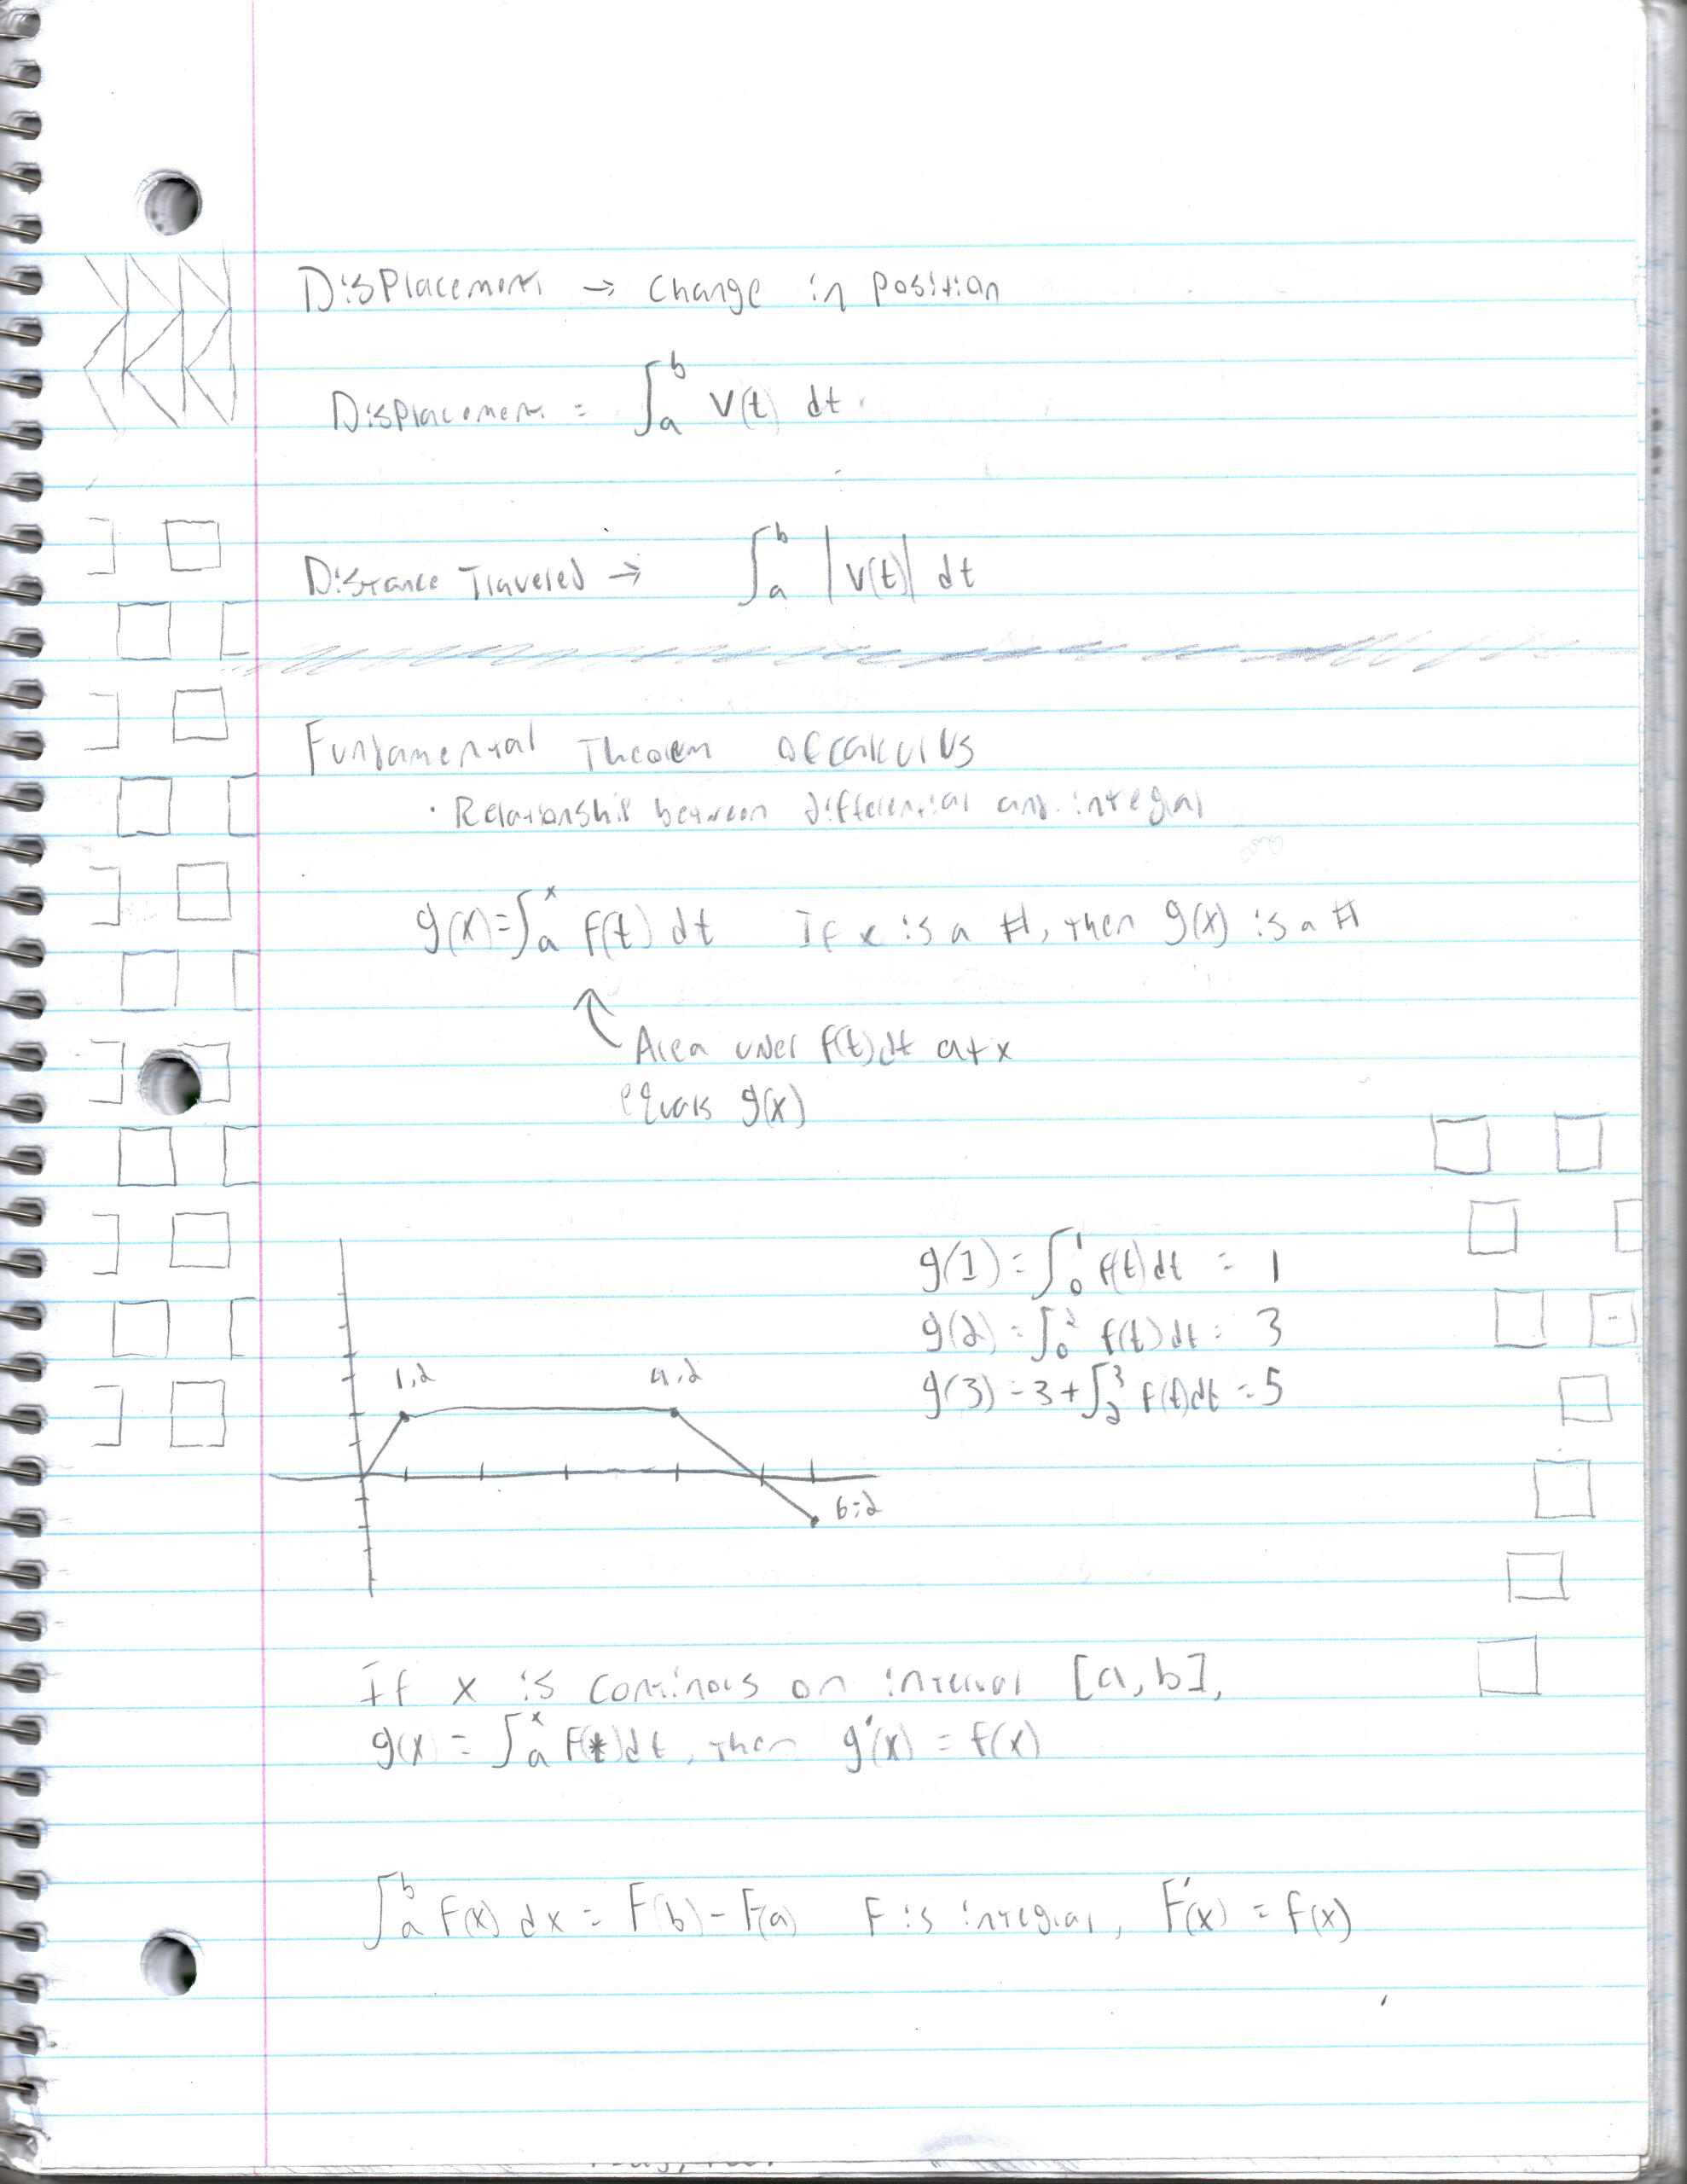 Displacement → change in position
Displacement = ∫_a^b v(t) dt
Distance Traveled → ∫_a^b |v(t)| dt
Fundamental Theorem of calculus
· Relationship between differential and integral
g(x) = ∫_a^x f(t) dt If x is a #, then g(x) is a #
↑ Area uner f(t)dt at x
equals g(x)
g(1) = ∫_0^1 f(t) dt = 1
g(2) = ∫_0^2 f(t) dt = 3
g(3) = 3 + ∫_2^3 f(t) dt = 5
1,2 4,2
6,-2
If x is continous on interval [a, b],
g(x) = ∫_a^x f(t)dt, then g'(x) = f(x)
∫_a^b f(x) dx = F(b) - F(a) F is integral, F'(x) = f(x)